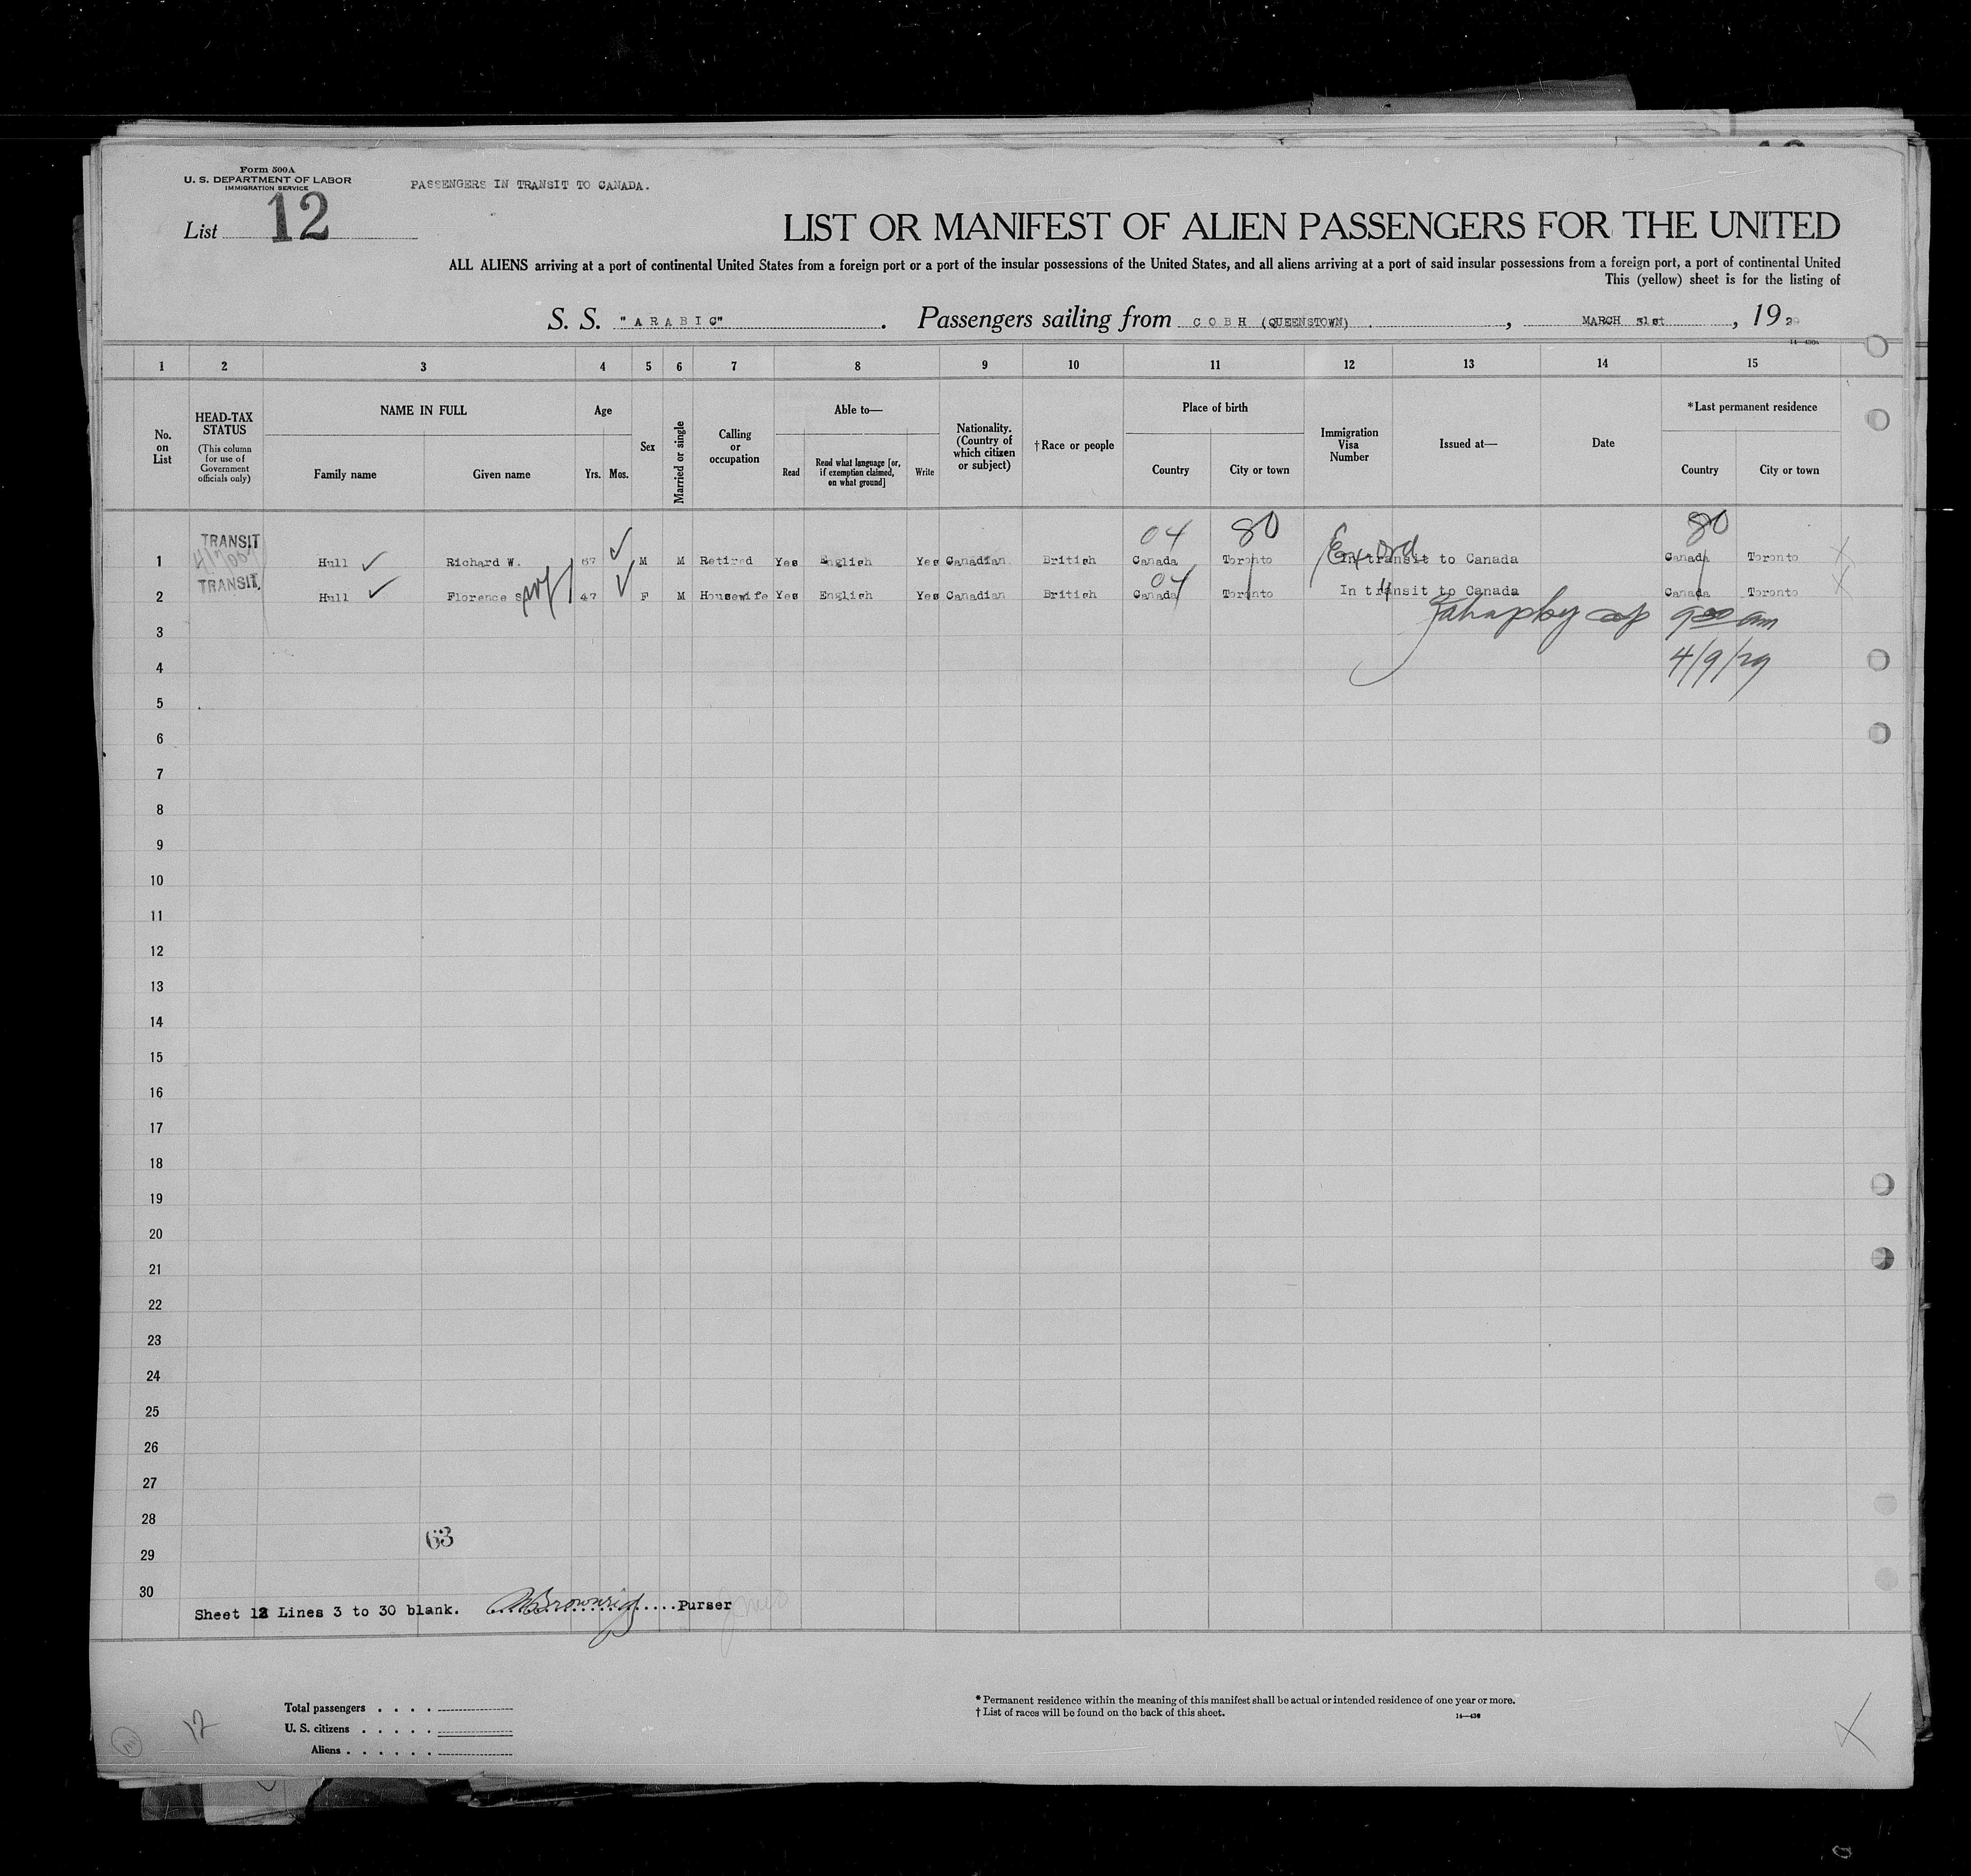 Form 500A
U. S. DEPARTMENT OF LABOR
IMMIGRATION SERVICE
PASSENGERS IN TRANSIT TO CANADA.
List 12
LIST OR MANIFEST OF ALIEN PASSENGERS FOR THE UNITED
ALL ALIENS arriving at a port of continental United States from a foreign port or a port of the insular possessions of the United States, and all aliens arriving at a port of said insular possessions from a foreign port, a port of continental United
This (yellow) sheet is for the listing of
S. S. "ARABIC". Passengers sailing from COBH (QUEENSTOWN)., MARCH 31st, 1929
1 2 3 4 5 6 7 8 9 10 11 12 13 14 15
No. on List
HEAD-TAX STATUS
(This column for use of Government officials only)
NAME IN FULL
Family name Given name
Age
Yrs. Mos.
Sex
Married or single
Calling or occupation
Able to—
Read Read what language [or, if exemption claimed, on what ground] Write
Nationality. (Country of which citizen or subject)
†Race or people
Place of birth
Country City or town
Immigration Visa Number
Issued at—
Date
*Last permanent residence
Country City or town
04 80 80
1 TRANSIT Hull Richard W. 67 M M Retired Yes English Yes Canadian British Canada Toronto In transit to Canada Canada Toronto
04
2 TRANSIT Hull Florence S. 47 F M Housewife Yes English Yes Canadian British Canada Toronto In transit to Canada Canada Toronto
9 00 am
4/9/29
3
4
5
6
7
8
9
10
11
12
13
14
15
16
17
18
19
20
21
22
23
24
25
26
27
28
63
29
30
Sheet 12 Lines 3 to 30 blank. Purser
Total passengers
U. S. citizens
Aliens
12
* Permanent residence within the meaning of this manifest shall be actual or intended residence of one year or more.
† List of races will be found on the back of this sheet.
14—430